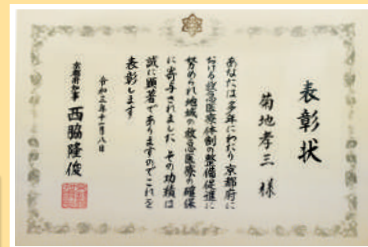 表彰状
菊地孝三 様
あなたは多年にわたり京都府に
おける救急医療体制の整備促進に
努められ地域の救急医療の確保
に寄与されました その功績は
誠に顕著でありますのでこれを
表彰します
令和三年十一月八日
京都府知事 西脇隆俊